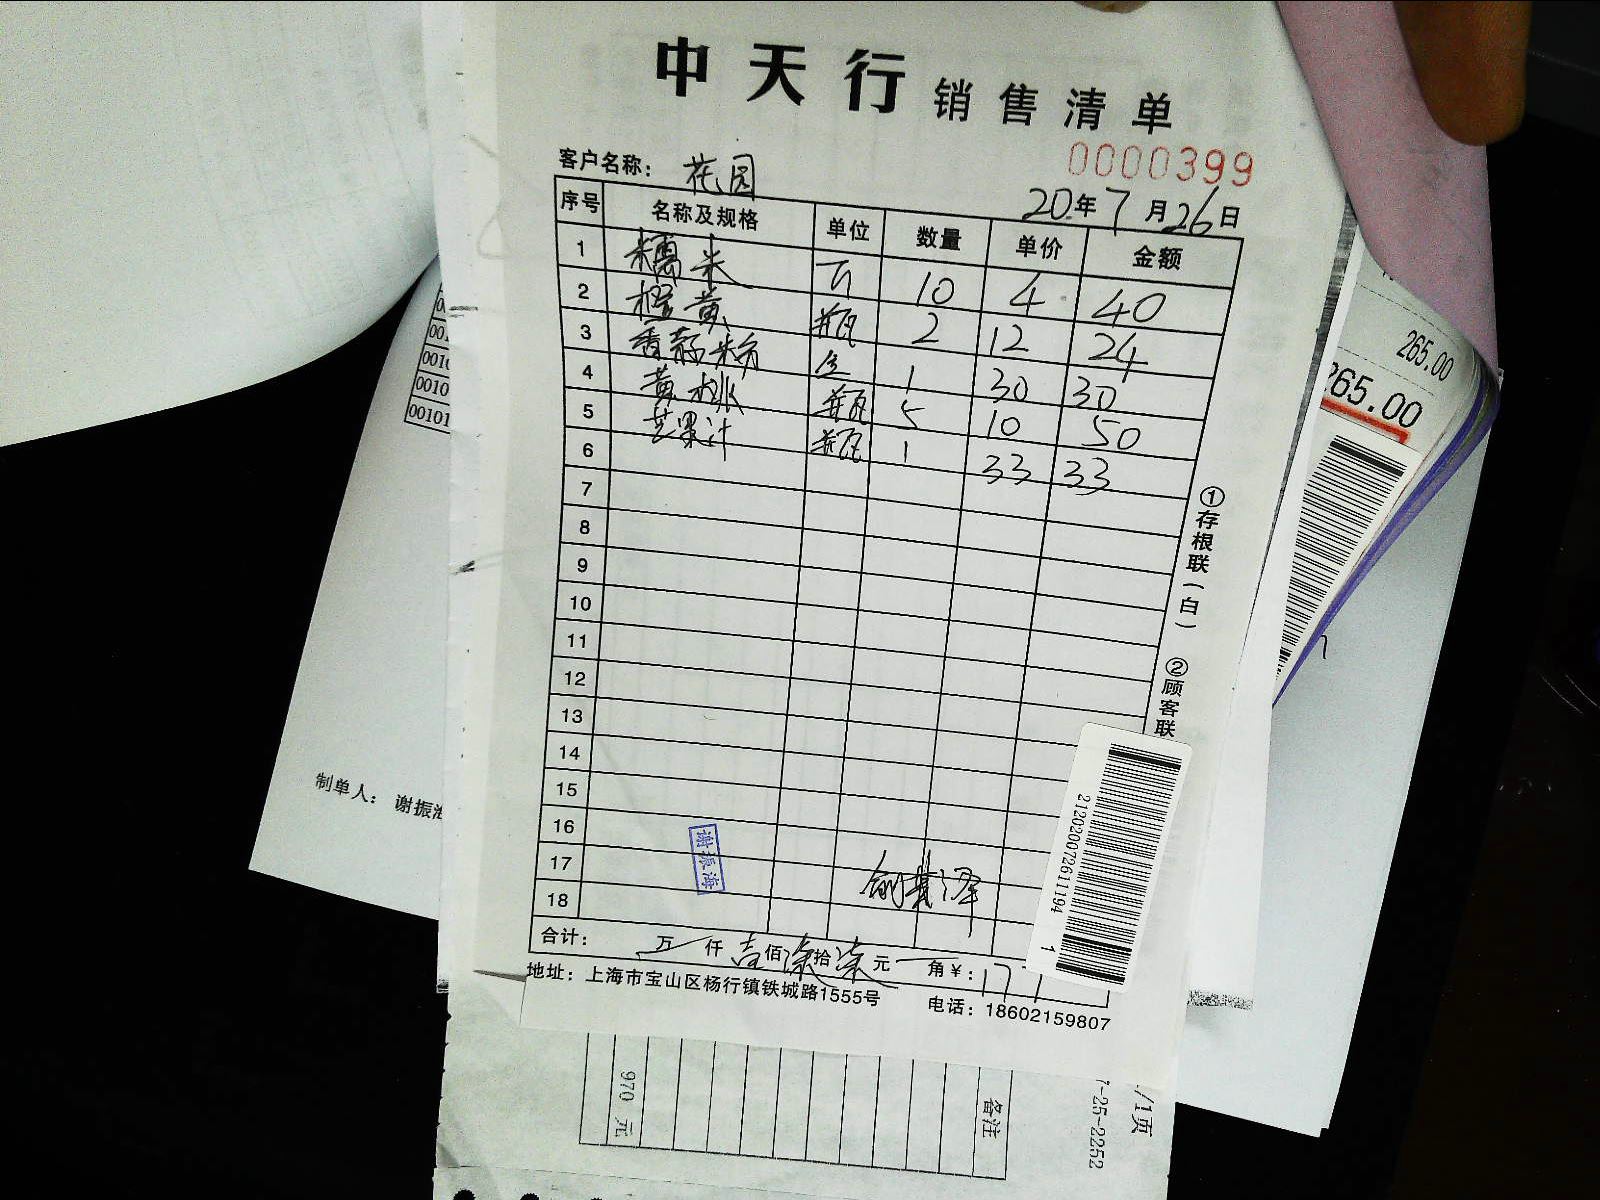 中天行 销售清单
0000399
客户名称： 花园
20年7月26日
序号 名称及规格 单位 数量 单价 金额
1 糯米 斤 10 4 40
2 橙黄 瓶 2 12 24
3 香蒜粉 1 30 30
4 黄桃 瓶 5 10 50
5 芒果汁 瓶 1 33 33
6
7
8
9
10
11
12
13
14
15
16
17
18
谢振海
合计： 万 仟 壹佰 柒拾 柒元 角 ¥：177
地址：上海市宝山区杨行镇铁城路1555号 电话：18602159807
①存根联（白） ②顾客联
2120200726111941
制单人： 谢振海
0010
00101
265.00
265.00
970 元
备注
/1页
7-25-2252